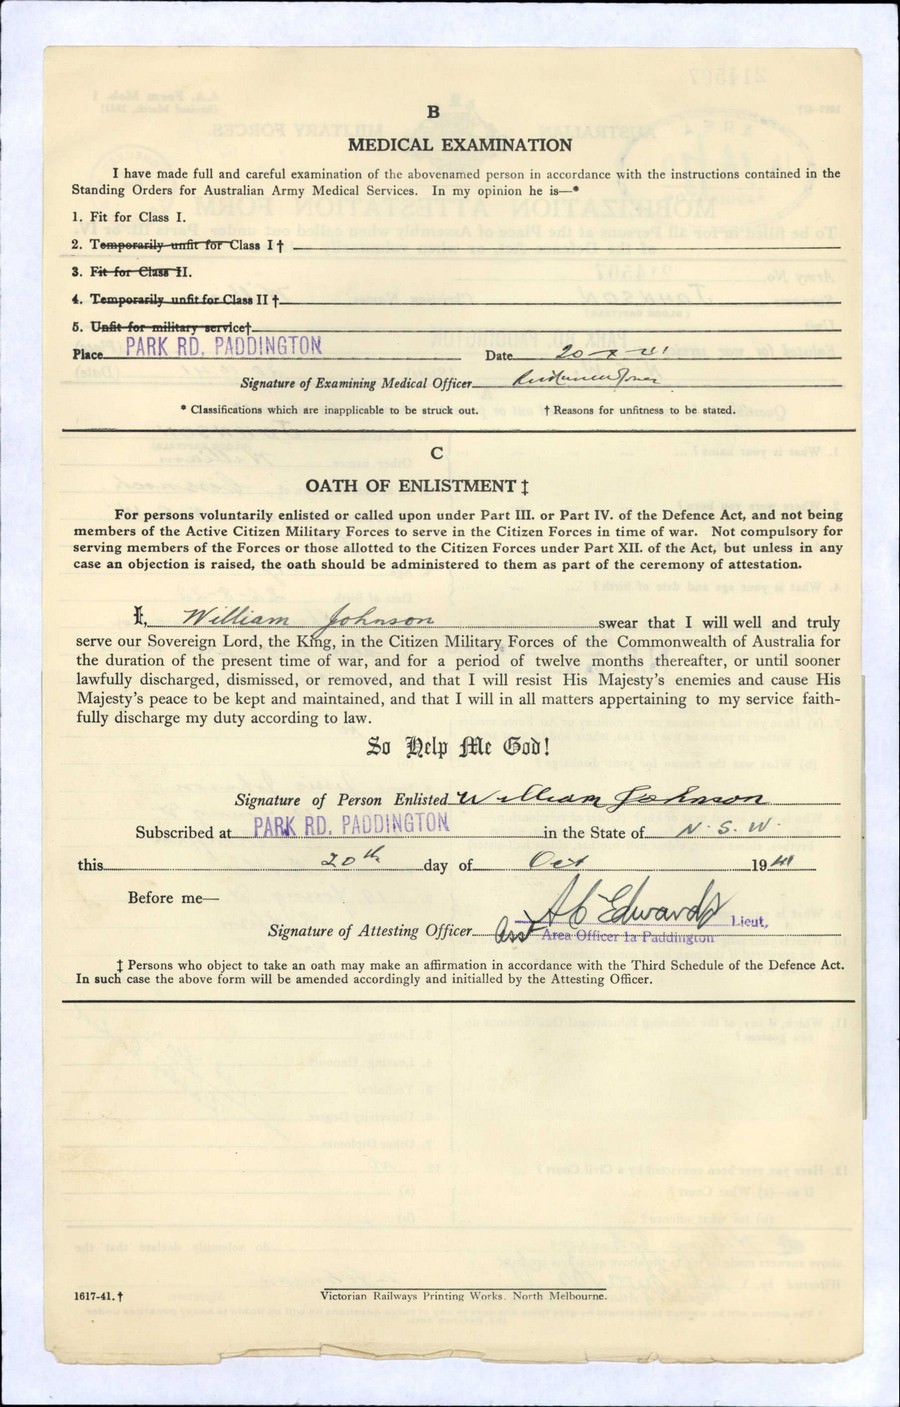 B
MEDICAL EXAMINATION
I have made full and careful examination of the abovenamed person in accordance with the instructions contained in the
Standing Orders for Australian Army Medical Services. In my opinion he is—*
1. Fit for Class I.
2. Temporarily unfit for Class I †
3. Fit for Class II.
4. Temporarily unfit for Class II †
5. Unfit for military service†
Place PARK RD. PADDINGTON Date 20-X-41
Signature of Examining Medical Officer
* Classifications which are inapplicable to be struck out. † Reasons for unfitness to be stated.
C
OATH OF ENLISTMENT ‡
For persons voluntarily enlisted or called upon under Part III. or Part IV. of the Defence Act, and not being
members of the Active Citizen Military Forces to serve in the Citizen Forces in time of war. Not compulsory for
serving members of the Forces or those allotted to the Citizen Forces under Part XII. of the Act, but unless in any
case an objection is raised, the oath should be administered to them as part of the ceremony of attestation.
I, William Johnson swear that I will well and truly
serve our Sovereign Lord, the King, in the Citizen Military Forces of the Commonwealth of Australia for
the duration of the present time of war, and for a period of twelve months thereafter, or until sooner
lawfully discharged, dismissed, or removed, and that I will resist His Majesty's enemies and cause His
Majesty's peace to be kept and maintained, and that I will in all matters appertaining to my service faith-
fully discharge my duty according to law.
So Help Me God!
Signature of Person Enlisted William Johnson
Subscribed at PARK RD. PADDINGTON in the State of N. S. W.
this 20th day of Oct 1941
Before me—
A C Edwards Lieut.
Signature of Attesting Officer Asst Area Officer 1a Paddington
‡ Persons who object to take an oath may make an affirmation in accordance with the Third Schedule of the Defence Act.
In such case the above form will be amended accordingly and initialled by the Attesting Officer.
1617-41.† Victorian Railways Printing Works. North Melbourne.